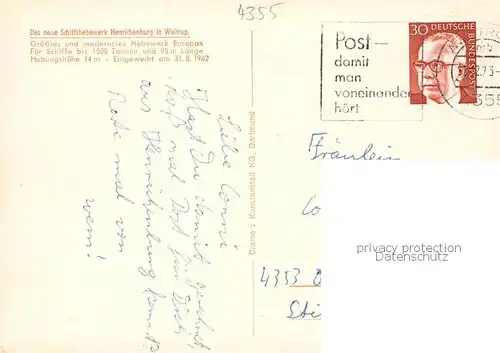 4355
Das neue Schiffshebewerk Henrichenburg in Waltrop.
Größtes und modernstes Hebewerk Europas
Für Schiffe bis 1500 Tonnen und 90 m Länge
Hebungshöhe 14 m - Eingeweiht am 31. 8. 1962
Post-
damit
man
voneinander
hört
30 DEUTSCHE
BUNDESPOST
355
Liebe Conni
Hast Du damit gerechnet,
daß mal Post für Dich
aus Henrichenburg kommt?
Rate mal von
wem!
Cramer's Kunstanstalt KG, Dortmund
Fräulein
Co
4353
privacy protection
Datenschutz